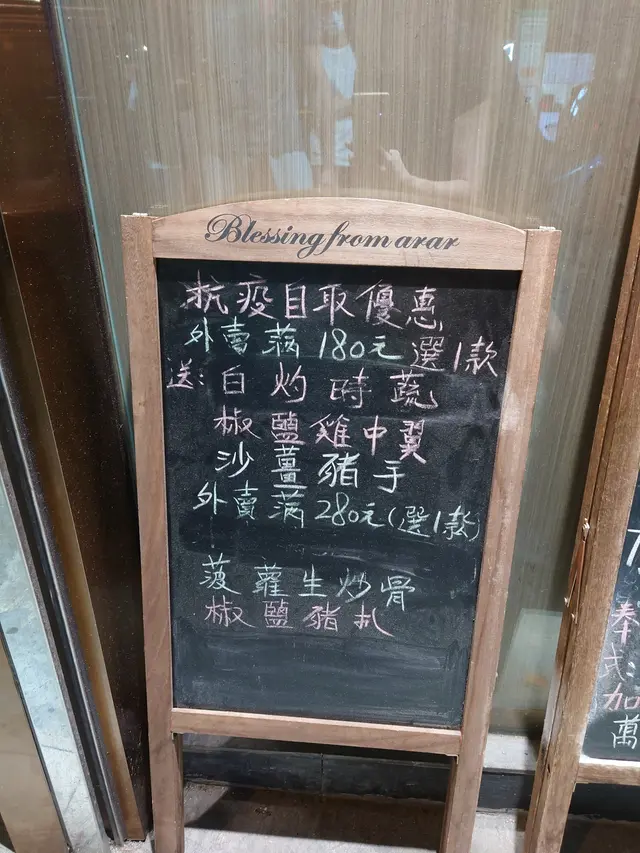 Blessing from arar
抗疫自取優惠
外賣滿180元選1款
送:白灼時蔬
椒鹽雞中翼
沙薑豬手
外賣滿280元(選1款)
菠蘿生炒骨
椒鹽豬扒
奉
加
萬